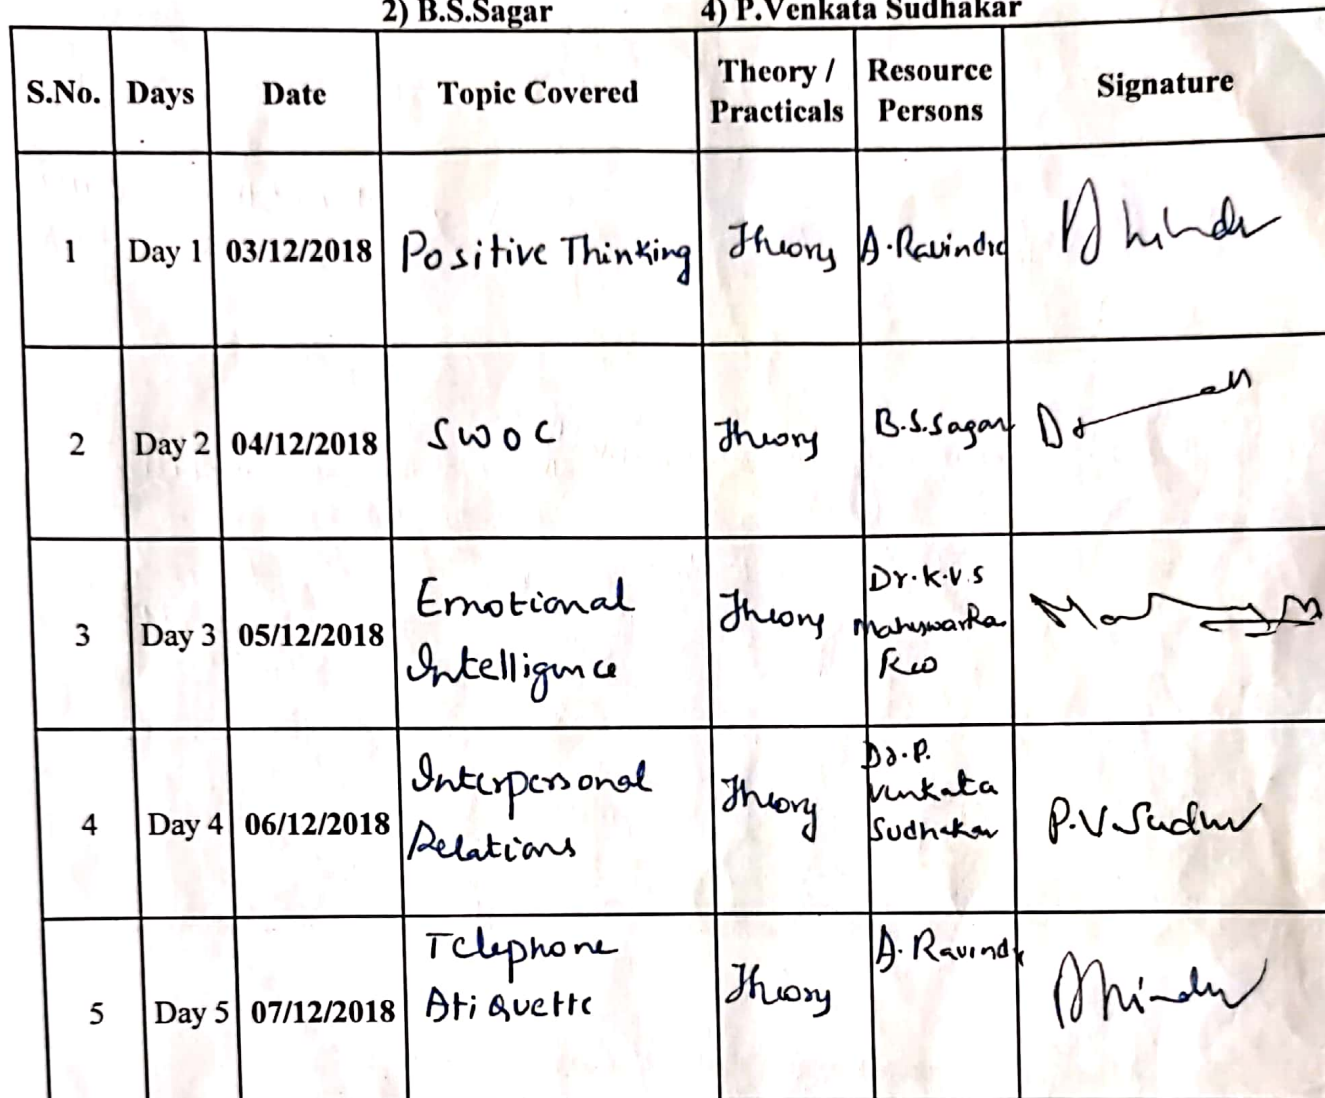 2) B.S.Sagar 4) P.Venkata Sudhakar
S.No. Days Date Topic Covered Theory / Practicals Resource Persons Signature
1 Day 1 03/12/2018 Positive Thinking Theory A.Ravindra
2 Day 2 04/12/2018 SWOC Theory B.S.Sagar
3 Day 3 05/12/2018 Emotional Intelligence Theory Dr.K.V.S Maheswarka Rao
4 Day 4 06/12/2018 Interpersonal Relations Theory Dr.P. Venkata Sudhakar P.V.Sudhr
5 Day 5 07/12/2018 Telephone Atiquette Theory A. Ravindr